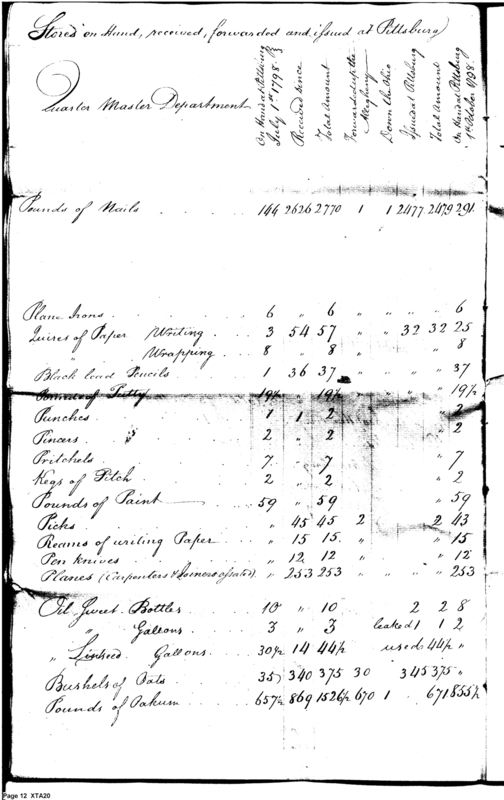 Stores on Hand, received, forwarded and issued at Pittsburg
Quarter Master Department
On Hand at Pittsburg July 1st 1798
Received since
Total Amount
Forwarded up the Alleghany
Down the Ohio
Issued at Pittsburg
Total Amount
On Hand at Pittsburg 1st October 1798.
Pounds of Nails . . . . . 144 2626 2770 1 1 2477 2479 291.
Plane Irons . . . . . 6 " 6 " " " " 6
Quires of Paper Writing . . . 3 54 57 " " 32 32 25
" Wrapping . . 8 " 8 " " 8
Black lead Pencils . . . 1 36 37 " " " 37
Pounds of Putty 19½ " 19½ " " 19½
Punches . . . . 1 1 2 " 2
Pincers . . . . 2 " 2 " 2
Pritchels . . . . 7 " 7 " 7
Kegs of Pitch . . . . 2 " 2 " 2
Pounds of Paint . . . 59 " 59 " 59
Picks . . . . " 45 45 2 2 43
Reams of writing Paper . . . " 15 15 " " 15
Pen knives . . . . " 12 12 " " 12
Planes (Carpenters & Joiners assorted) . " 253 253 " " " " 253
Oil Sweet Bottles . . . 10 " 10 2 2 8
" Gallons . . . 3 " 3 leaked 1 1 2
" Linseed Gallons . . . 30½ 14 44½ used 44½ "
Bushels of Oats . . . 35 340 375 30 345 375 "
Pounds of Oakum . . . 657½ 869 1526½ 670 1 . 671 855½
Page 12 XTA20